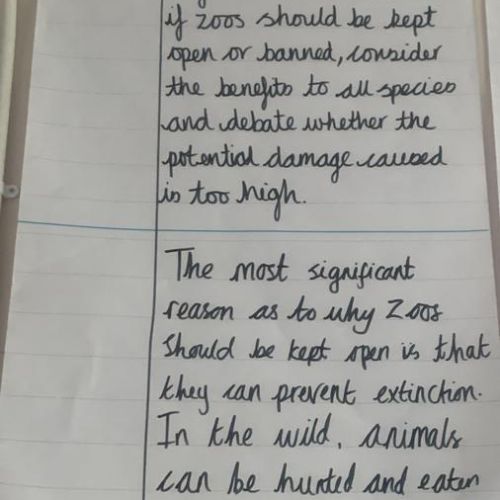 if zoos should be kept
open or banned, consider
the benefits to all species
and debate whether the
potential damage caused
is too high.
The most significant
reason as to why Zoos
should be kept open is that
they can prevent extinction.
In the wild, animals
can be hunted and eaten